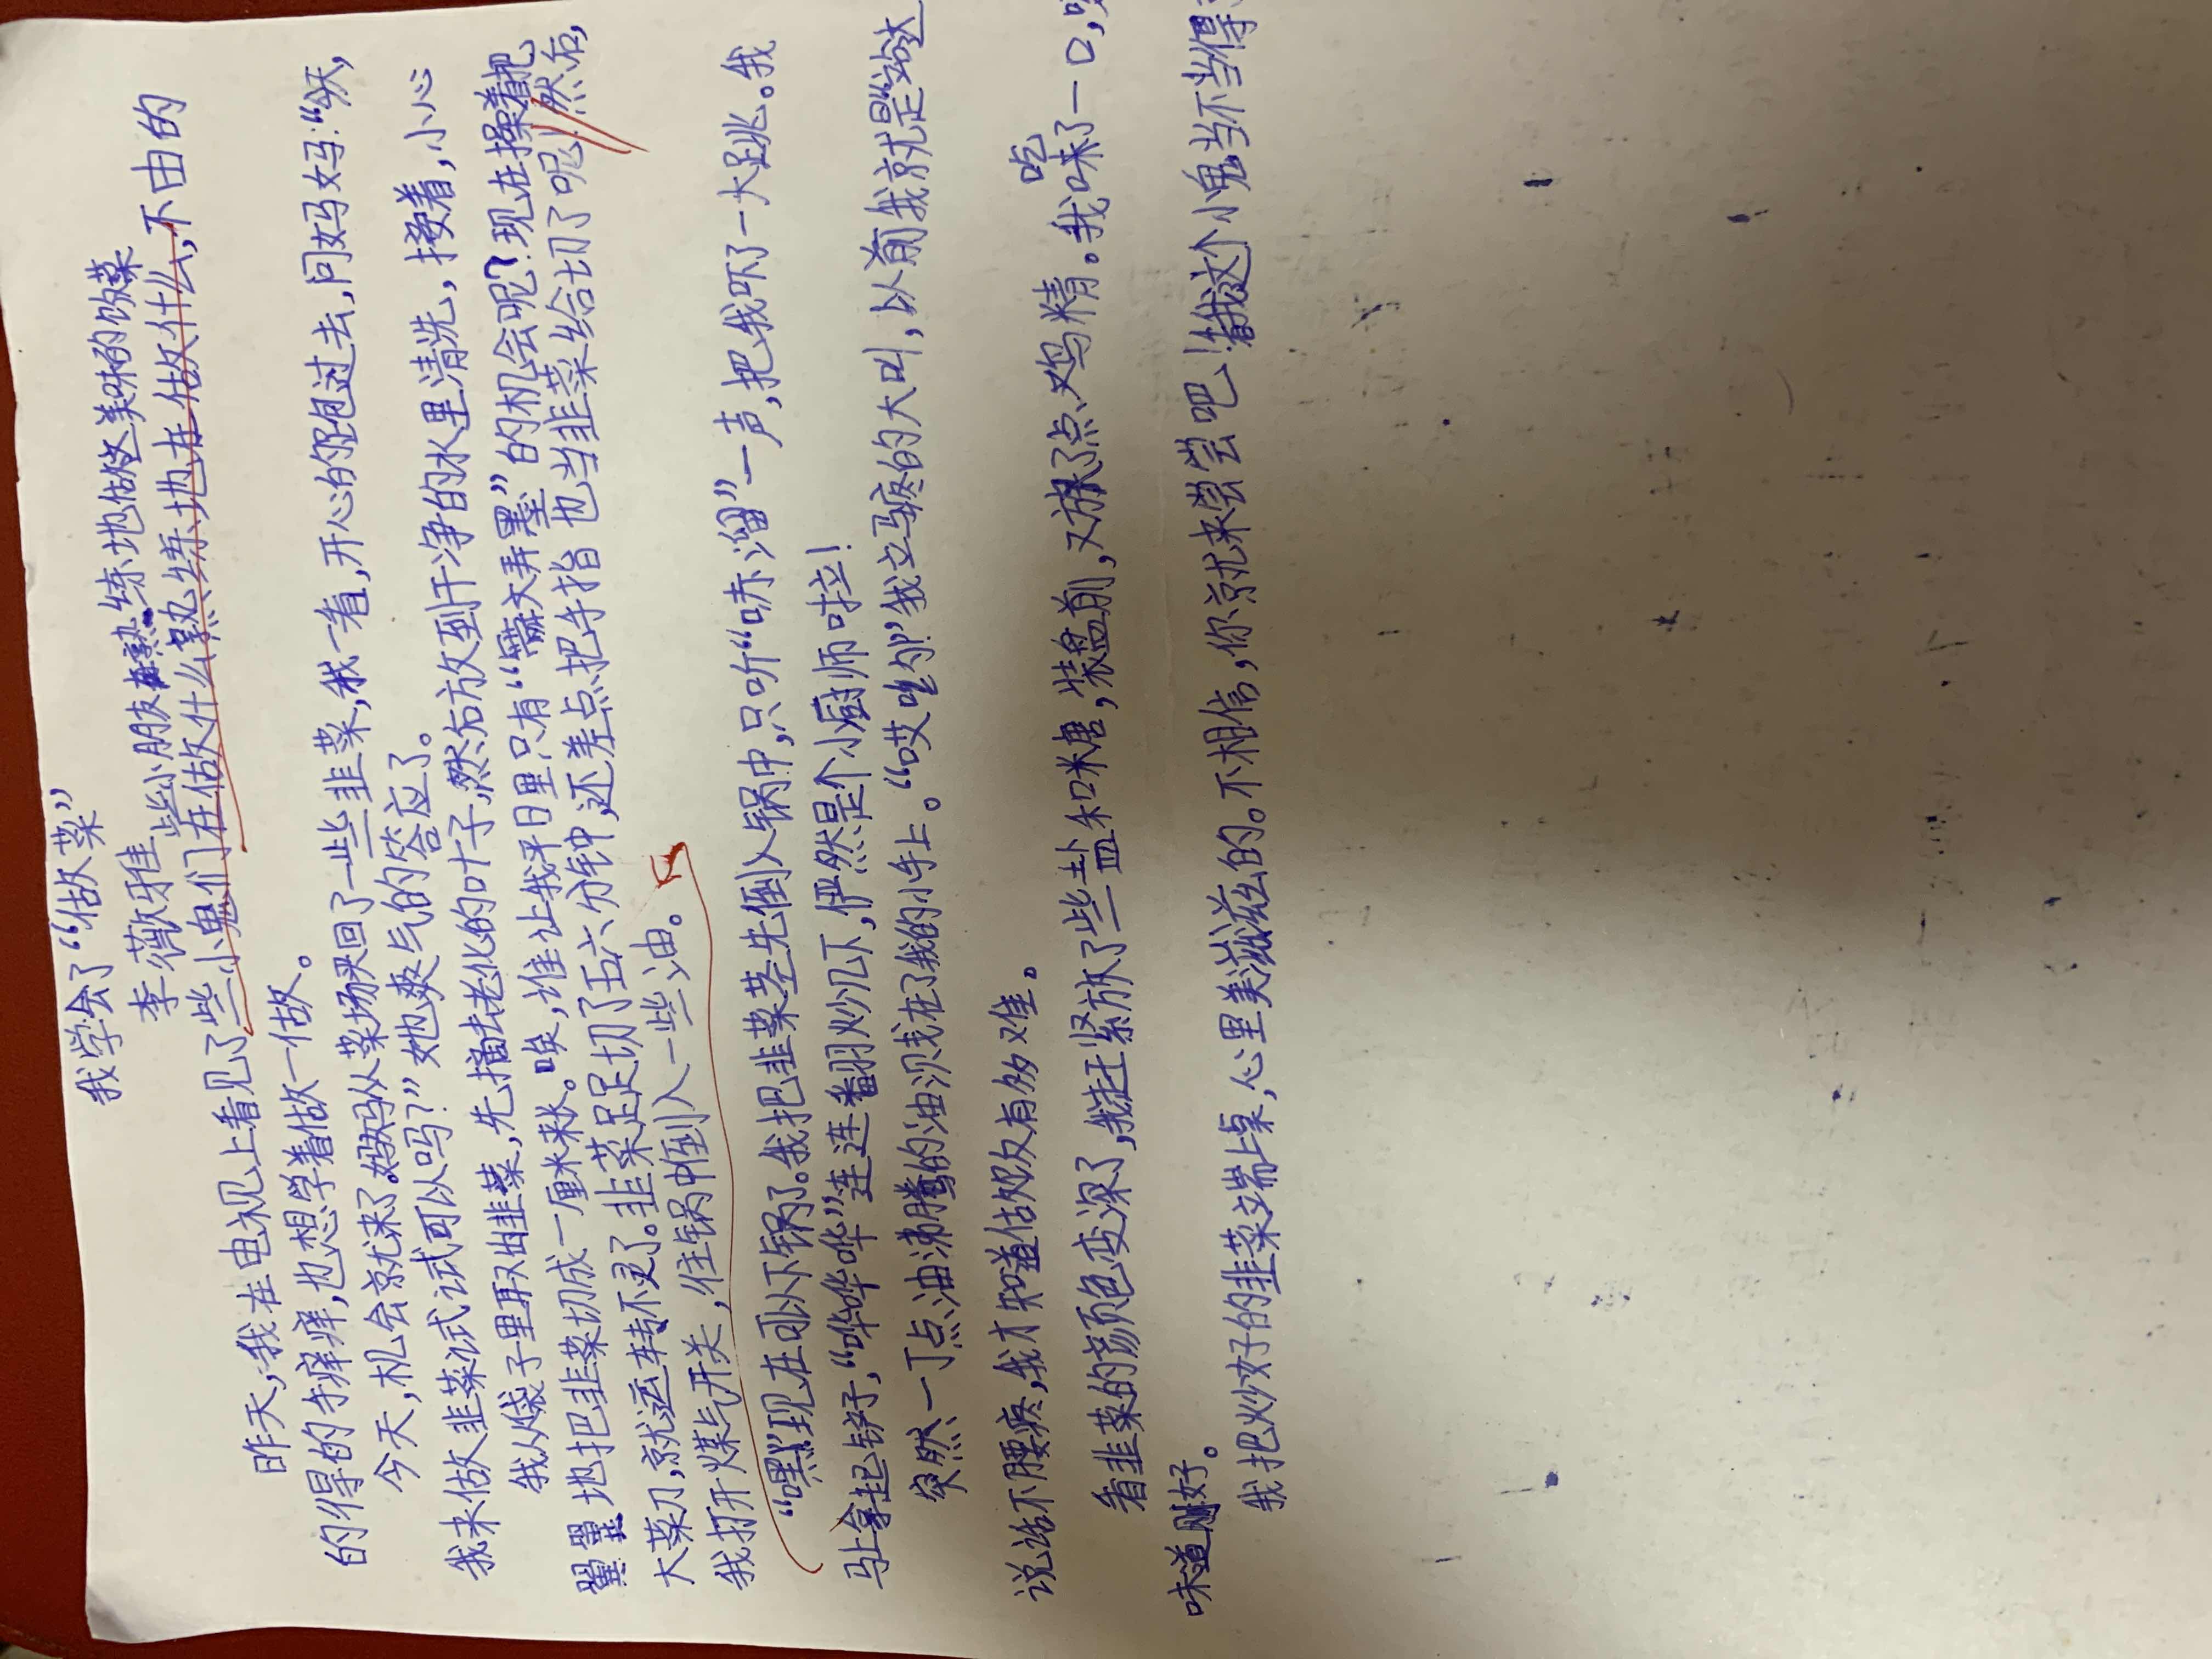 我学会了“做菜”
李薇雅
些小朋友在熟练地做这美味的饭菜
昨天，我在电视上看见了些小鬼们在做什么熟练地在做什么，不由的
的得的手痒痒，也想学着做一做。
今天，机会就来了。妈妈从菜场买回了一些韭菜，我一看，开心的跑过去，问妈妈：“今天，
我来做韭菜试试可以吗？”她爽气的答应了。
我从袋子里取出韭菜，先摘去老化的叶子，然后放到干净的水里清洗，接着，小心
翼翼地把韭菜切成一厘米长。唉，谁让我平日里只有“舞文弄墨”的机会呢？现在操着把
大菜刀，就运转不灵了。韭菜足足切了五六分钟，还差点把手指也当韭菜给切了呢！然后，
我打开煤气开关，往锅中倒入一些油。
“嘿”现在可以下锅了。我把韭菜茎先倒入锅中，只听“哧溜”一声，把我吓了一大跳。我
马上拿起铲子，“哗哗哗”连连翻炒几下，俨然是个小厨师啦！
突然一丁点油沸腾的油溅在了我的小手上。“哎哟”我立马疼的大叫，以前我就是“站达
说话不腰疼，我才知道做饭有多难。
看韭菜的颜色变深了，我赶紧放了些盐和糖，装盘前，又放了点鸡精。我吃了一口，
味道刚好。
我把炒好的韭菜端上桌，心里美滋滋的。不相信，你就来尝尝吧！看我这个小鬼当不当得